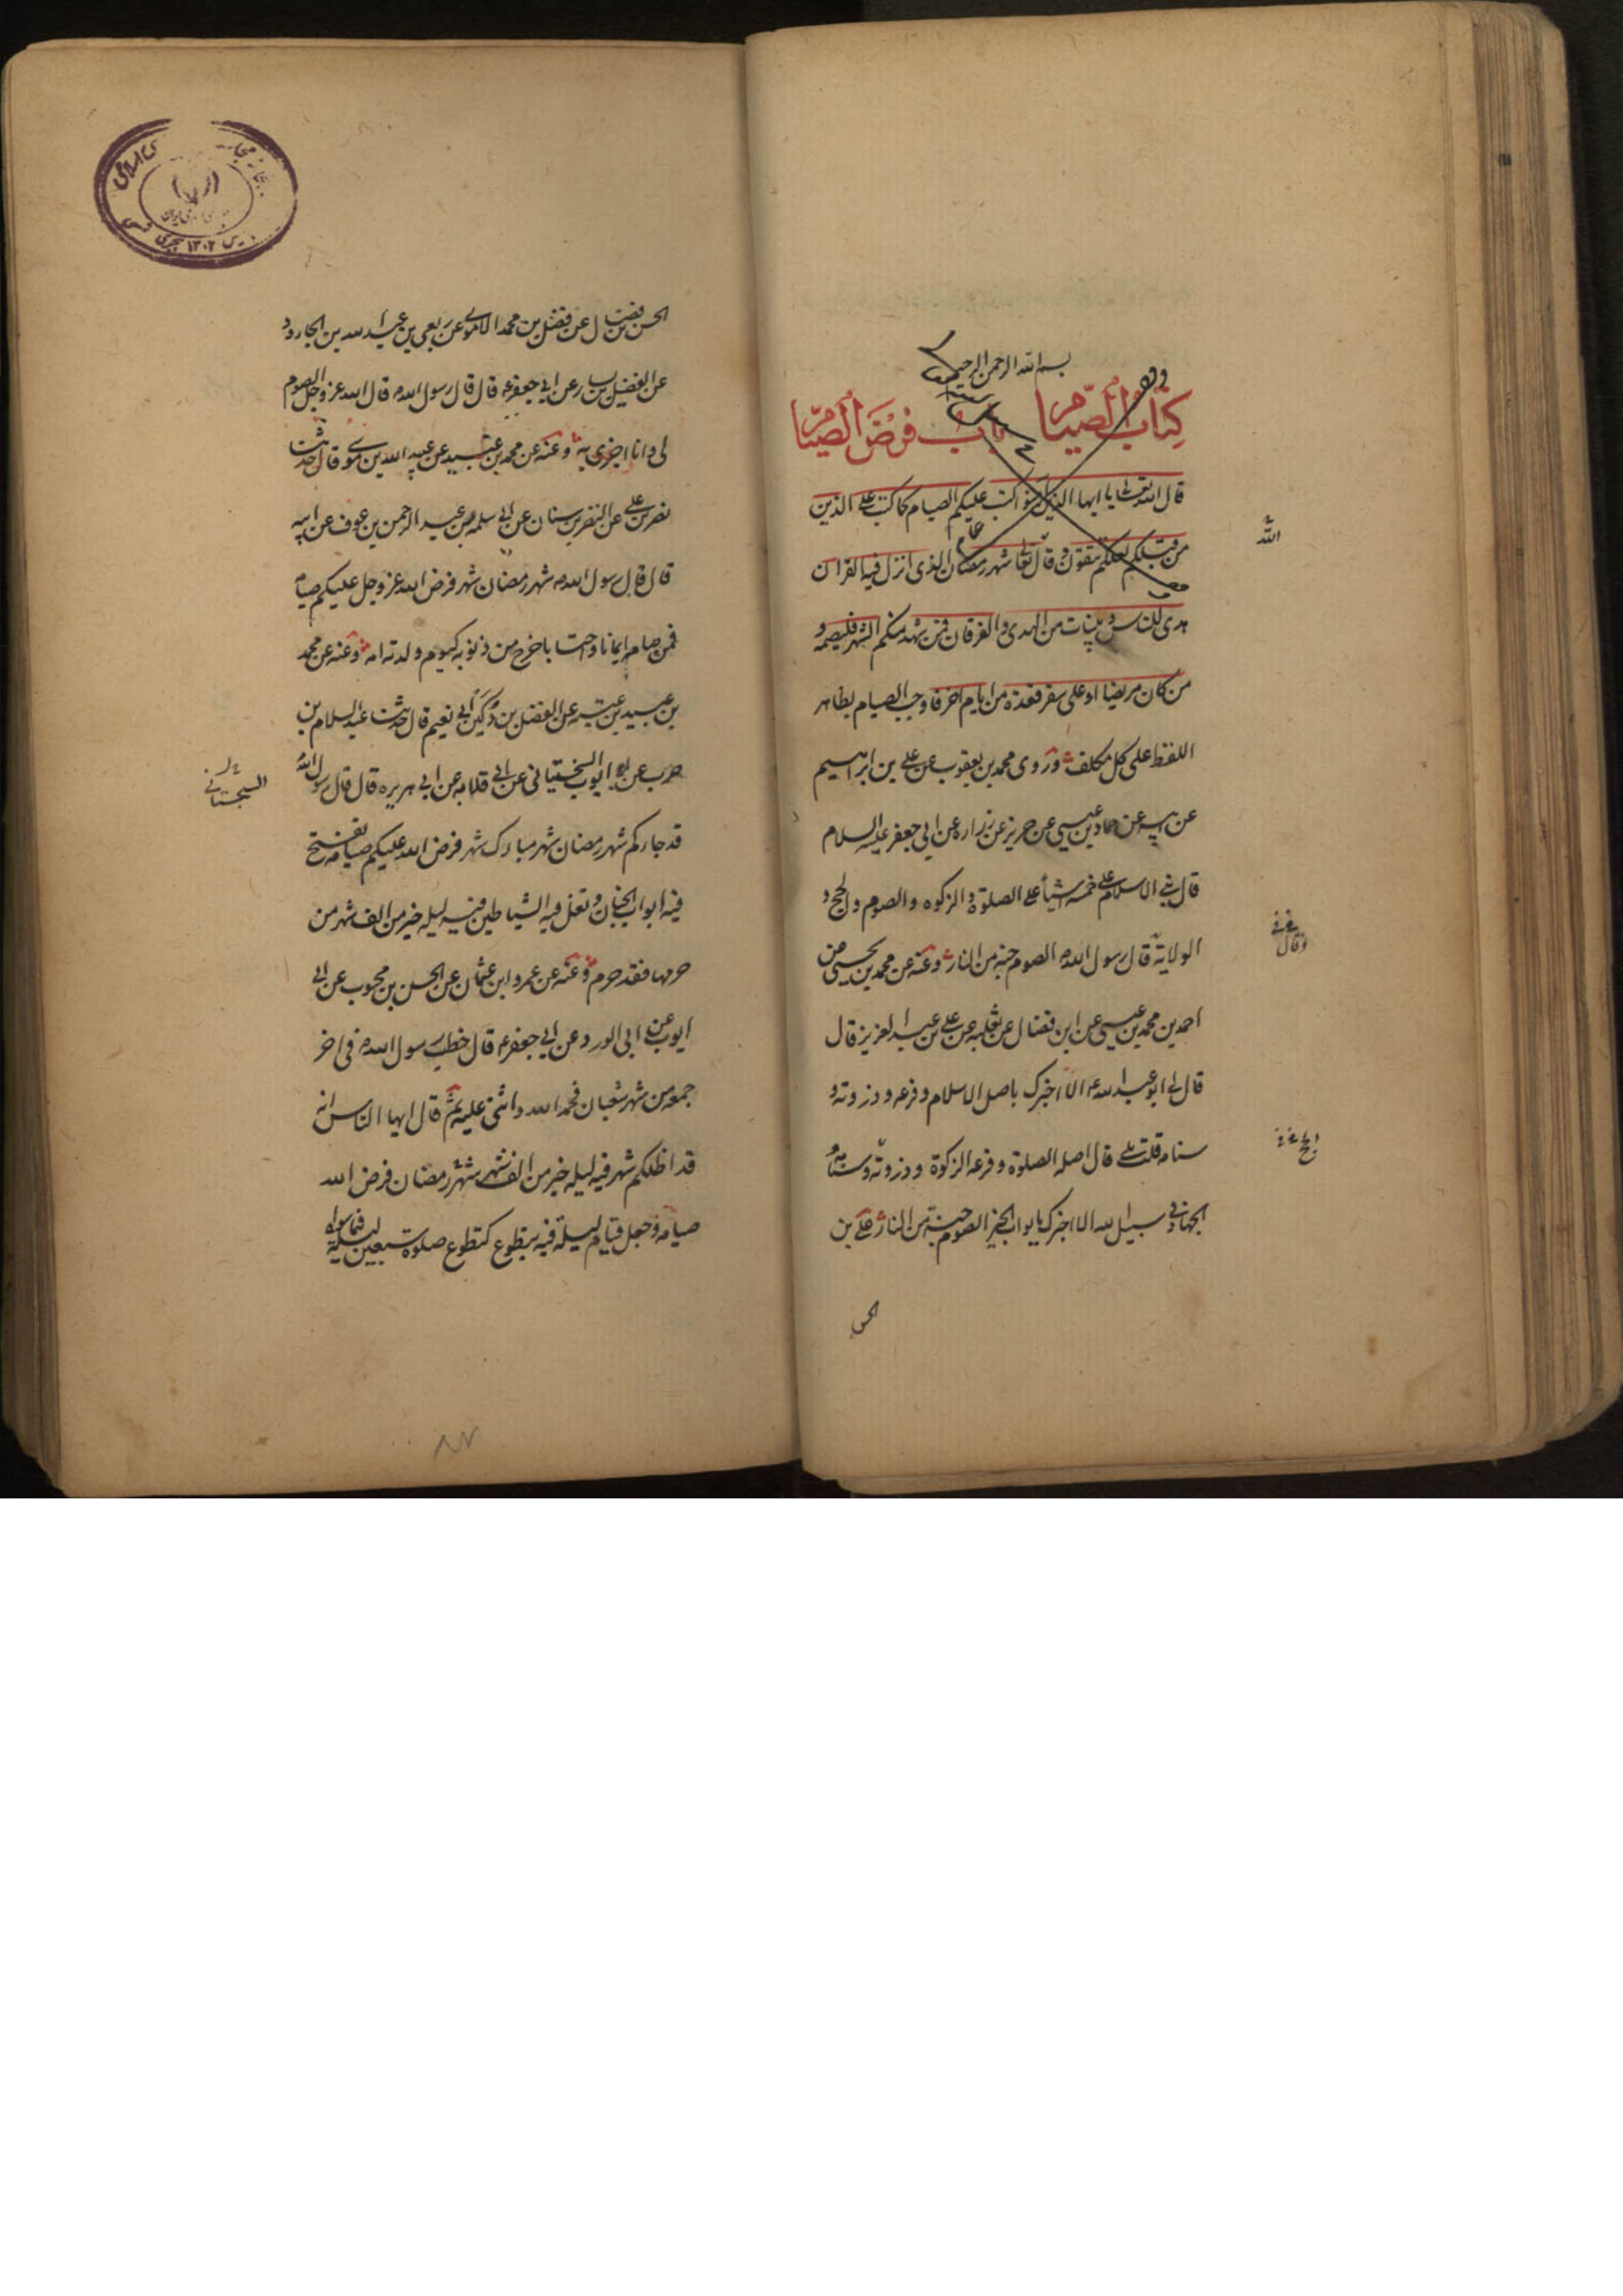 بسم الله الرحمن الرحيم
كتاب الصيام باب فرض الصيام
قال الله تعالى يا ايها الذين امنوا كتب عليكم الصيام كما كتب على الذين
من قبلكم لعلكم تتقون وقال تعالى شهر رمضان الذى انزل فيه القرآن
هدى للناس وبينات من الهدى والفرقان فمن شهد منكم الشهر فليصمه و
من كان مريضا او على سفر فعدة من ايام اخر فاوجب الصيام بظاهر
اللفظ على كل مكلف وروى محمد بن يعقوب عن على بن ابراهيم
عن ابيه عن حماد بن عيسى عن حريز عن زراره عن ابى جعفر عليه السلام
قال بنى الاسلام على خمسة اشياء على الصلوة والزكوه والصوم والحج و
الولاية قال رسول الله الصوم جنه من النار وعنه عن محمد بن يحيى عن
احمد بن محمد بن عيسى عن ابن فضال عن ثعلبه عن على بن عبد العزيز قال
قال لى ابو عبد الله ع الا اخبرك باصل الاسلام وفرعه وذروته و
سنامه قلت بلى قال اصله الصلوة وفرعه الزكوة وذروته وسنامه
الجهاد فى سبيل الله الا اخبرك بابواب الخير الصوم جنة من النار على بن
الحسن
الله
وقال
الحسن بن فضال عن فضل بن محمد الاموى عن ربعى بن عبد الله بن الجارود
عن الفضيل بن يسار عن ابى جعفر ع قال قال رسول الله قال الله عز وجل الصوم
لى وانا اجزى به وعنه عن محمد بن عبيد عن عبيد الله بن موسى قال حدثنا
نصر بن على عن النضر بن سنان عن ابى سلمه بن عبد الرحمن بن عوف عن ابيه
قال قال رسول الله شهر رمضان شهر فرض الله عز وجل عليكم صيامه
فمن صامه ايمانا واحتسابا خرج من ذنوبه كيوم ولدته امه وعنه عن محمد
بن عبيد بن عتبه عن الفضل بن دكين ابى نعيم قال حدثنا عبد السلام بن
حرب عن ايوب السختيانى عن ابى قلابه عن ابى هريره قال قال رسول الله
السجستانى
قد جاءكم شهر رمضان شهر مبارك شهر فرض الله عليكم صيامه تفتح
فيه ابواب الجنان وتغل فيه الشياطين فيه ليله خير من الف شهر من
حرمها فقد حرم وعنه عن عمرو ابن عثمان عن الحسن بن محبوب عن ابى
ايوب عن ابى الورد عن ابى جعفر ع قال خطب رسول الله فى اخر
جمعه من شهر شعبان فحمد الله واثنى عليه ثم قال ايها الناس انه
قد اظلكم شهر فيه ليله خير من الف شهر شهر رمضان فرض الله
صيامه وجعل قيام ليلة فيه بتطوع كتطوع صلوة سبعين ليلة فيما سواه